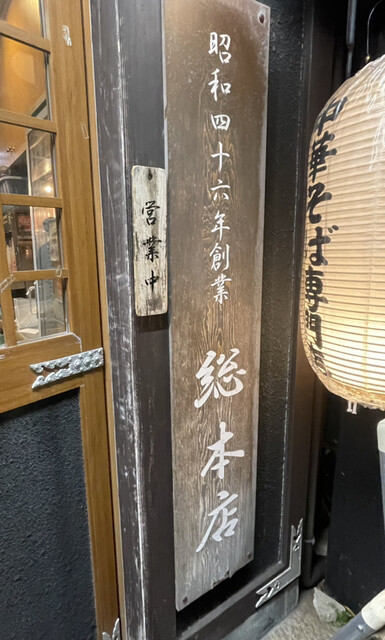 昭和四十六年創業
総本店
営業中
中華そば専門店